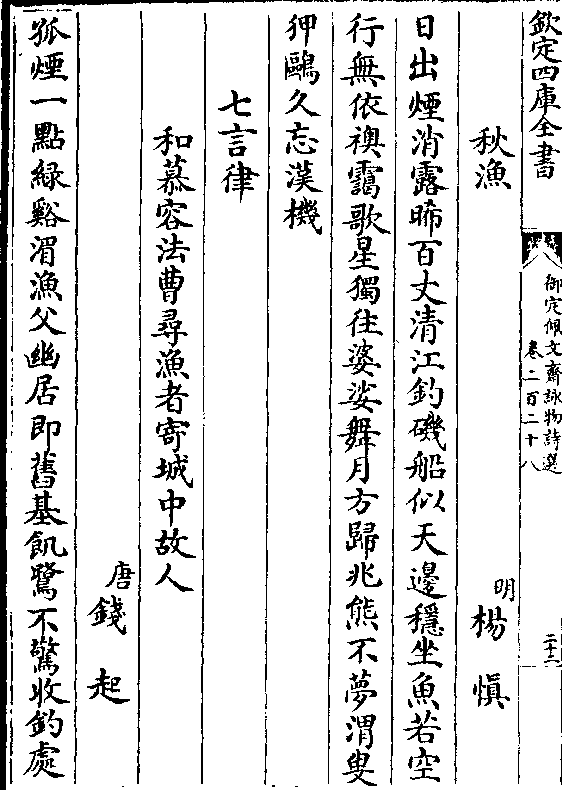 欽定四庫全書
御定佩文齋詠物詩選
卷二百二十八
二十二
秋漁
明楊慎
日出煙消露晞百丈清江釣磯船似天邊穩坐魚若空
行無依襖靄歌星獨往婆娑舞月方歸兆熊不夢渭叟
狎鷗久忘漢機
七言律
和慕容法曹尋漁者寄城中故人
唐錢起
孤煙一點綠谿湄漁父幽居即舊基飢鷺不驚收釣處